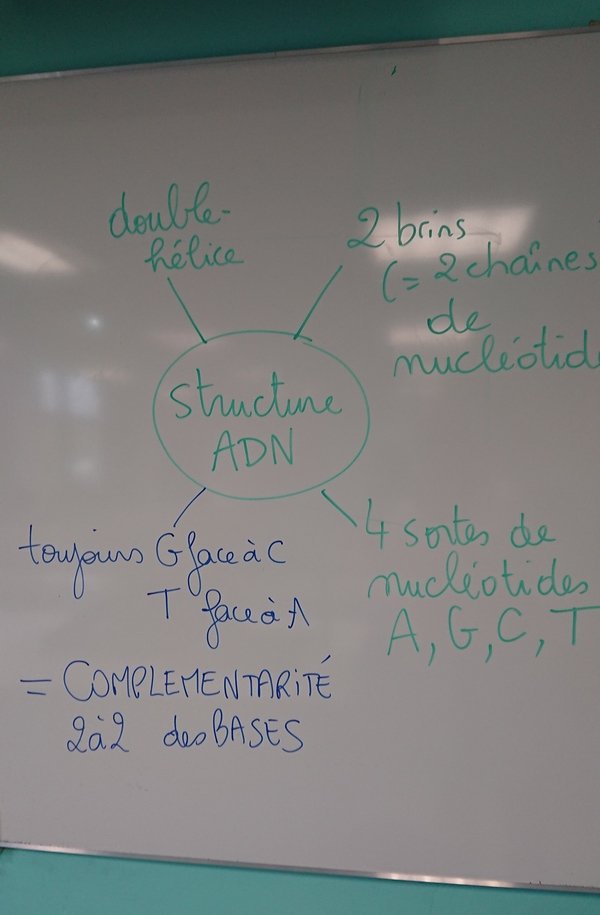 double-
hélice
2 brins
(= 2 chaînes
de
nucléotid
structure
ADN
toujours G face à C
T face à A
= COMPLEMENTARITÉ
2 à 2 des BASES
4 sortes de
nucléotides
A, G, C, T